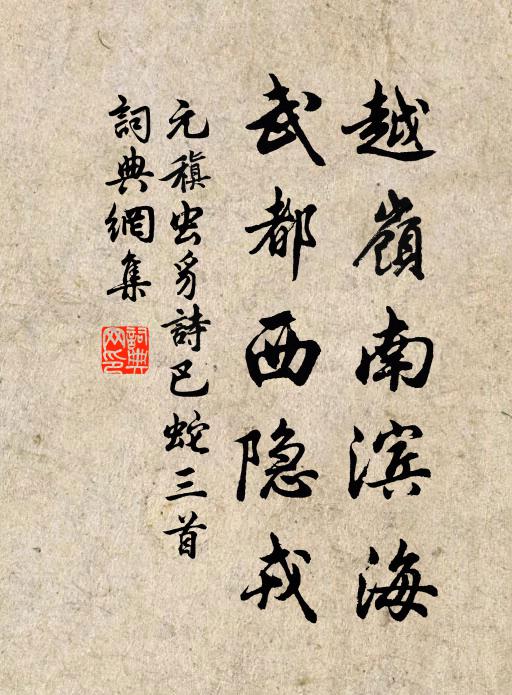 越嶺南滨海
武都西隐戎
元稹虫豸詩巴蛇三首
詞典網集
詞典網印